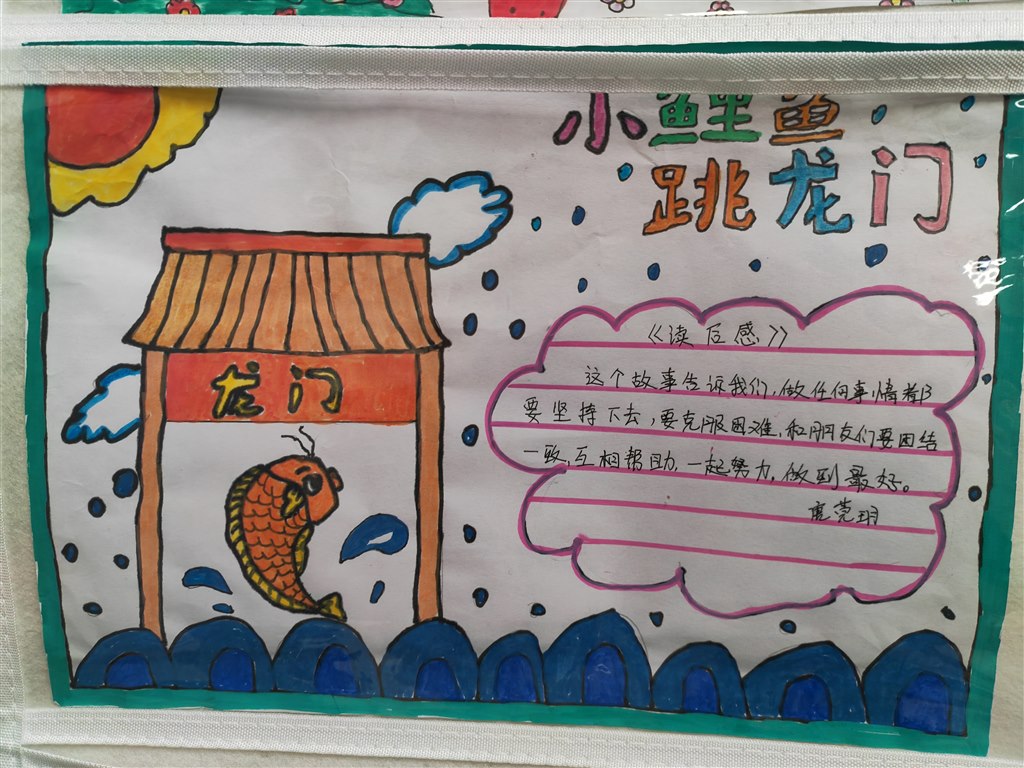 小鲤鱼
跳龙门
龙门
《读后感》
这个故事告诉我们,做任何事情都
要坚持下去,要克服困难,和朋友们要团结
一致,互相帮助,一起努力,做到最好。